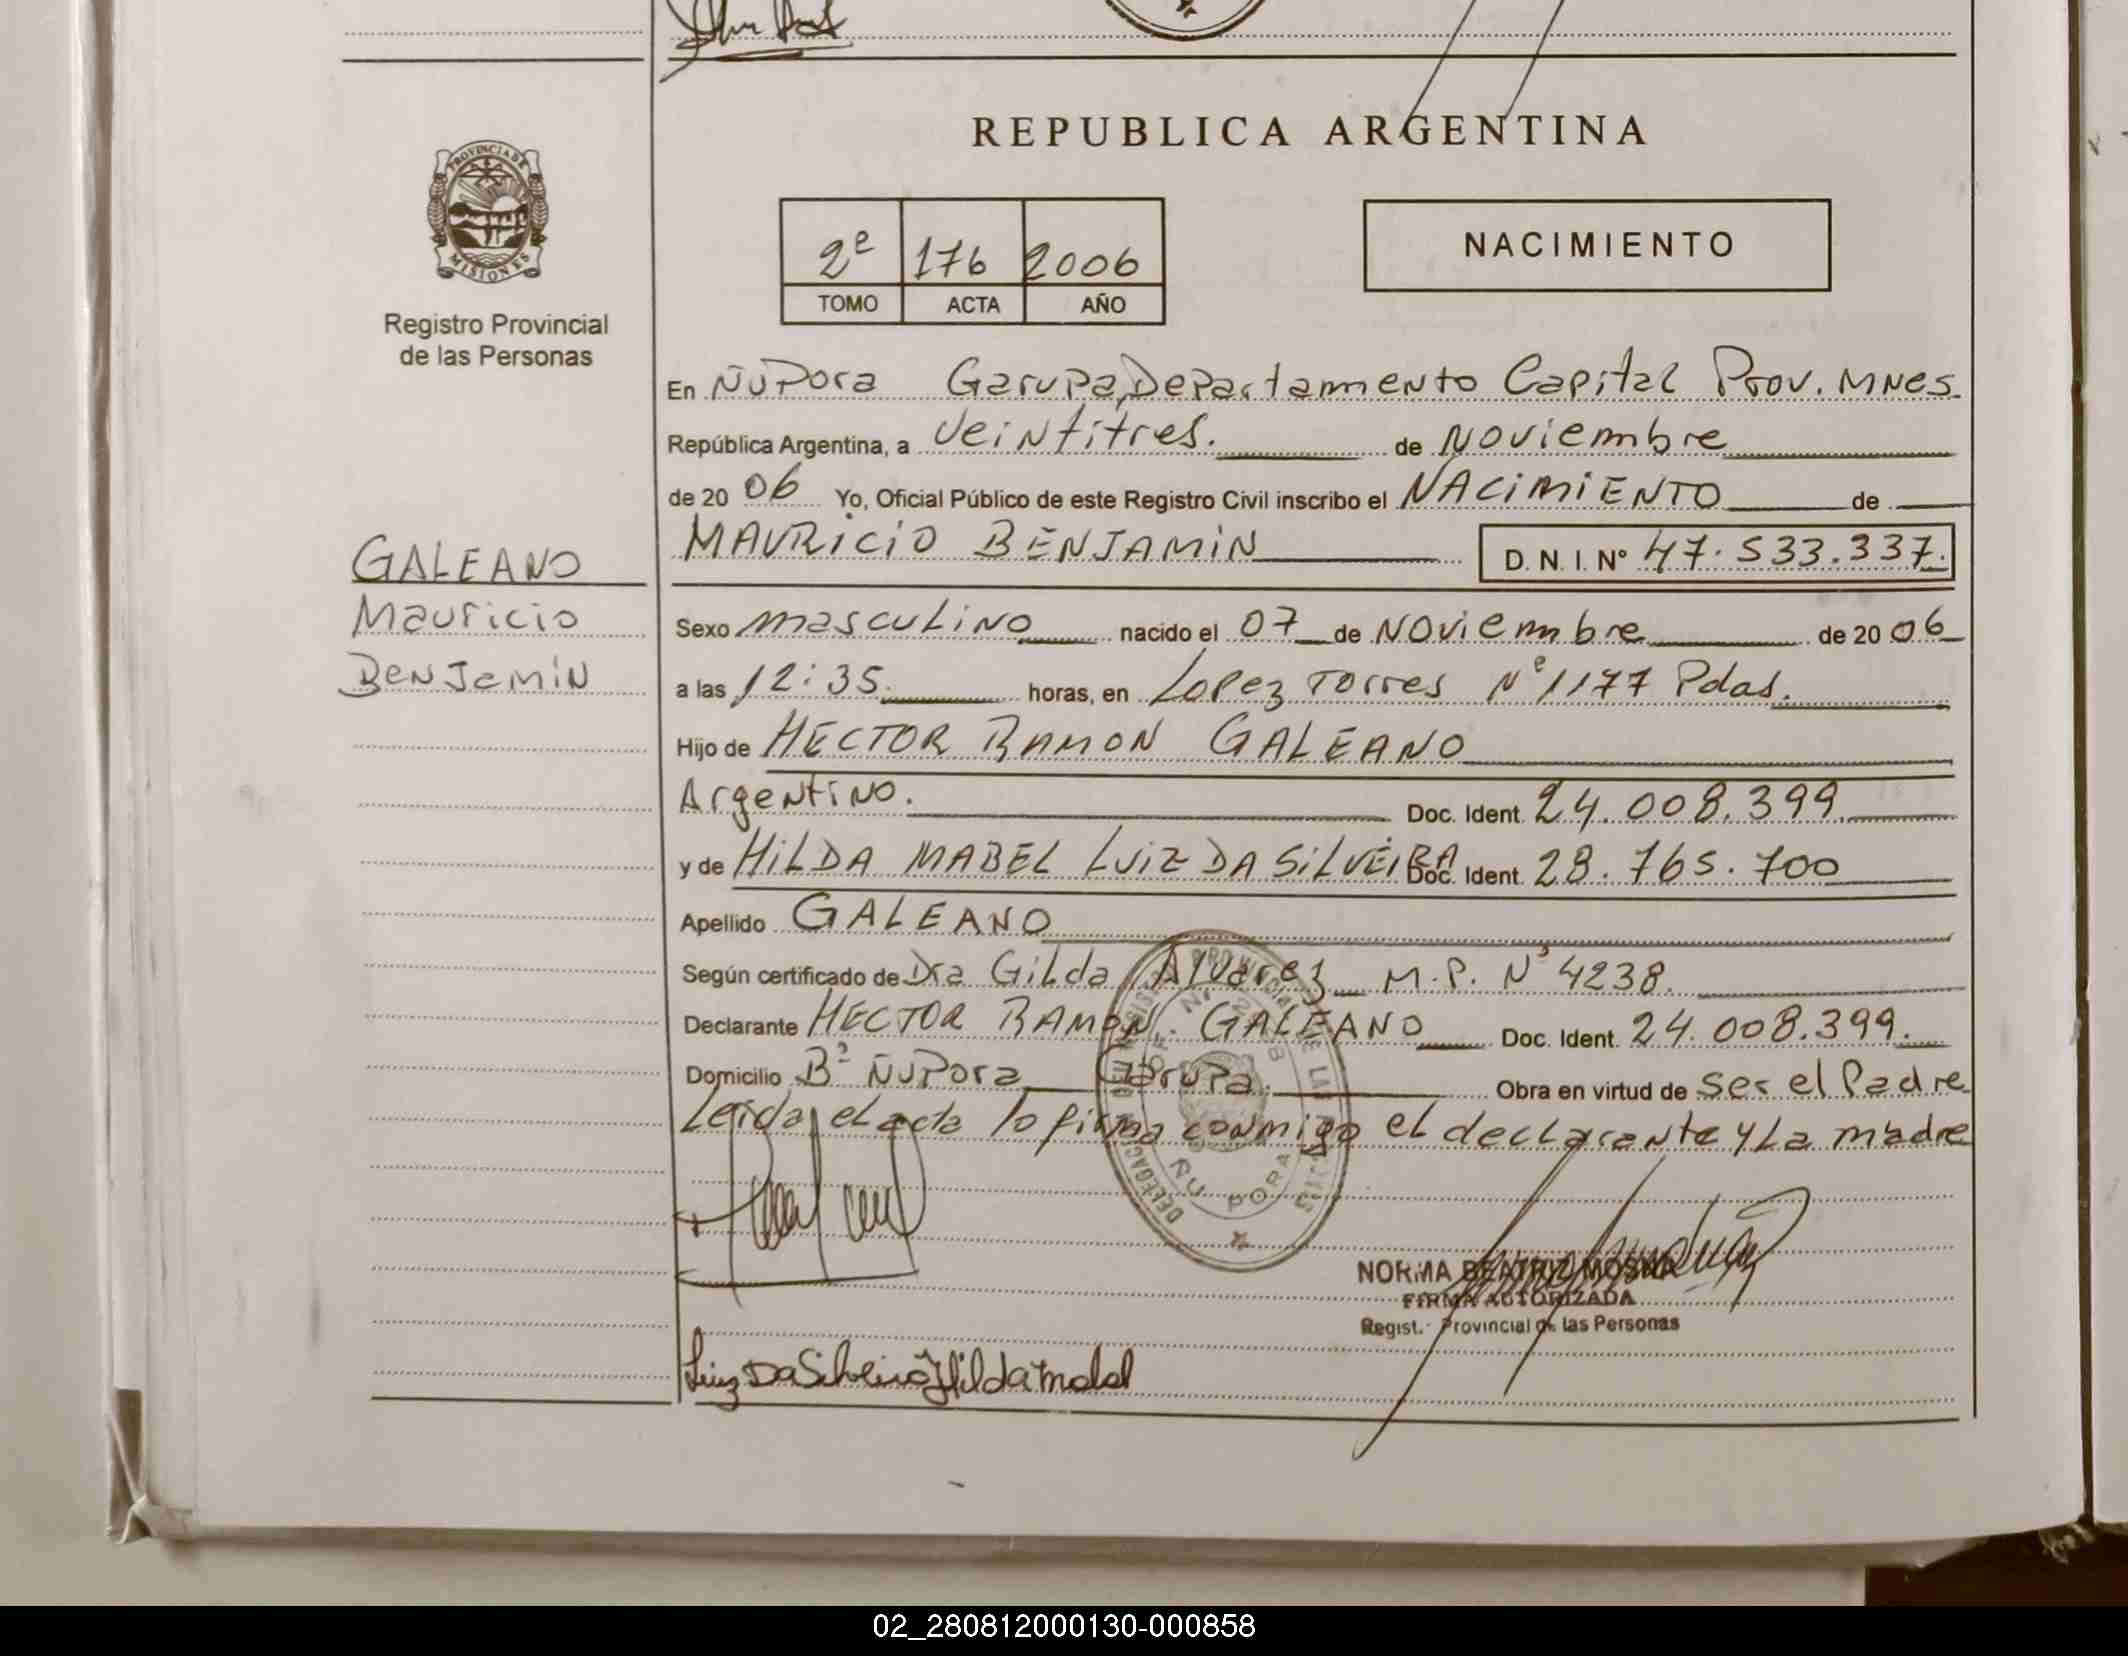 REPUBLICA ARGENTINA
PROVINCIA DE
MISIONES
Registro Provincial
de las Personas
2º 176 2006
TOMO ACTA AÑO
NACIMIENTO
En Ñupora Garupa, Departamento Capital Prov. Mnes.
República Argentina, a Veintitres. de Noviembre
de 20 06 Yo, Oficial Público de este Registro Civil inscribo el NACIMIENTO de
MAURICIO BENJAMIN D. N. I. Nº 47.533.337.
GALEANO
Mauricio
Benjamin
Sexo masculino nacido el 07 de Noviembre de 20 06
a las 12:35. horas, en Lopez Torres Nº 1177 Pdas.
Hijo de HECTOR RAMON GALEANO
Argentino. Doc. Ident. 24.008.399.
y de HILDA MABEL LUIZ DA SILVEIRA Doc. Ident. 28.765.700
Apellido GALEANO
Según certificado de Dra Gilda Alvarez M.P. Nº 4238.
Declarante HECTOR RAMON. GALEANO Doc. Ident. 24.008.399.
Domicilio Bº Ñupora Garupa. Obra en virtud de ser el Padre
Leida el acta lo firma conmigo el declarante y la madre
ÑU PORA
NORMA BEATRIZ
FIRMA AUTORIZADA
Regist. Provincial de las Personas
Luiz Da Silveira Hilda Mabel
02_280812000130-000858